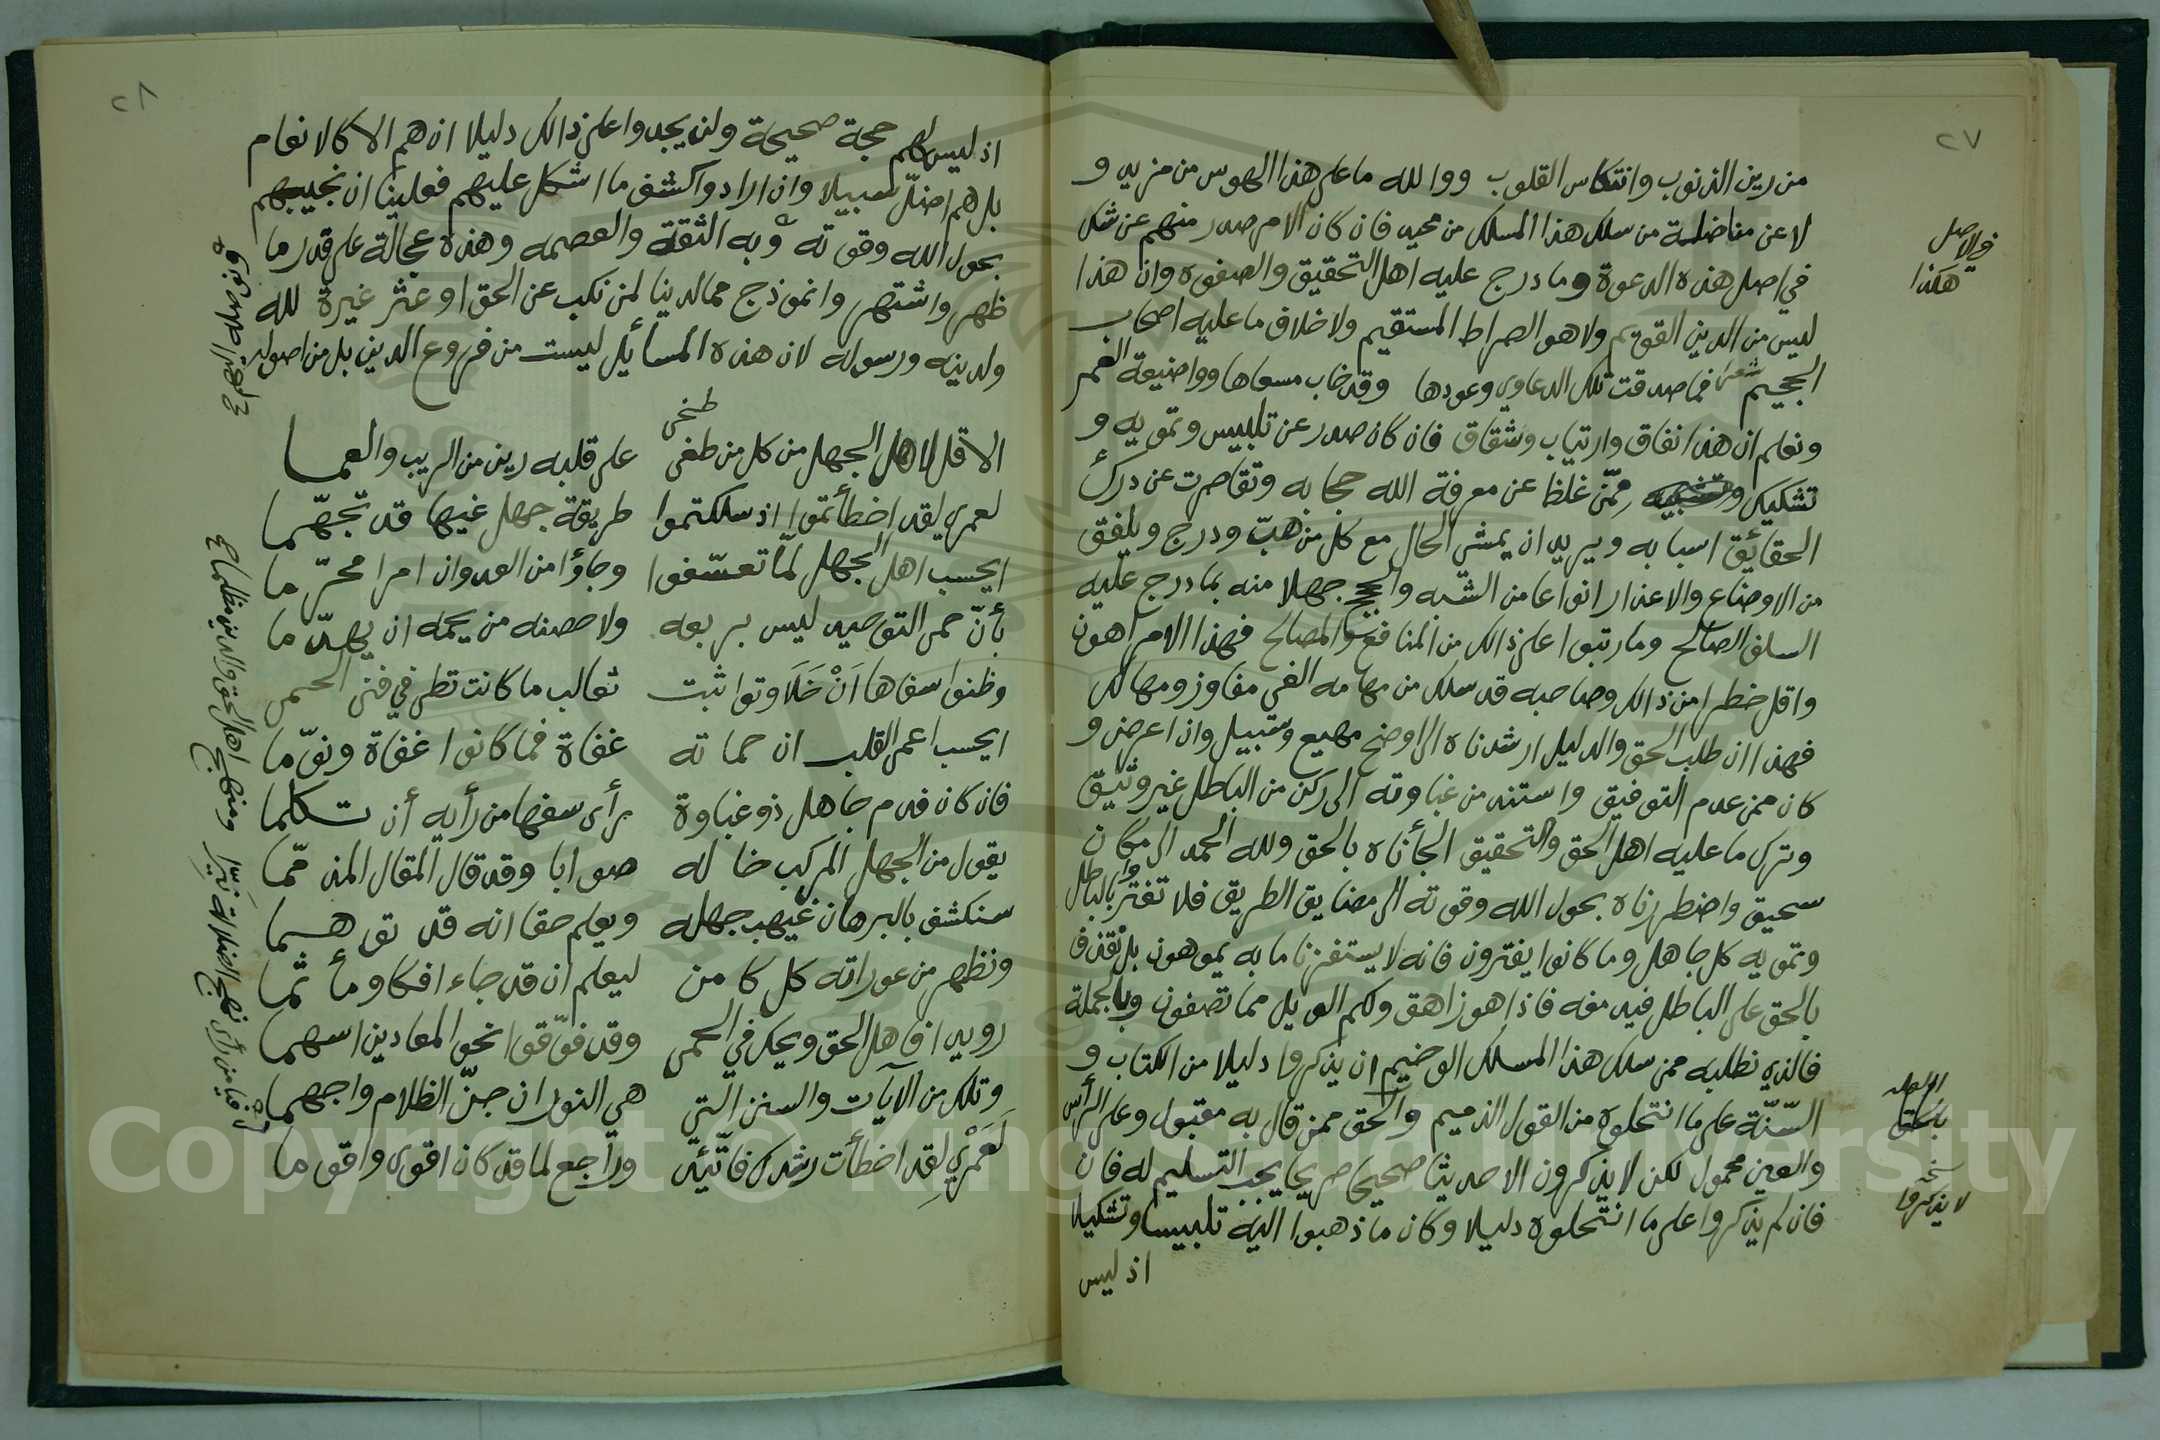 ٢٧
من رين الذنوب وانتكاس القلوب ووالله ما على هذا الهوس من مزيد و
لا عن مناضلة من سلك هذا المسلك من محيد فان كان الامر صدر منهم عن شك
في اصل هذه الدعوة وما درج عليه اهل التحقيق والصفوه وان هذا
ليس من الدين القويم ولا هو الصراط المستقيم ولا خلاف ما عليه اصحاب
الجحيم فما صدقت تلك الدعاوي وعودها وقد خاب مسعاها وواضيعة العمر
ونعلم ان هذا نفاق وارتياب وشقاق فان كان صدر عن تلبيس وتمويه و
تشكيك وتشبيه ممّن غلظ عن معرفة الله حجابه وتقاصرت عن درك
الحقائق اسبابه ويريد ان يمشي الحال مع كل من هبّ ودرج ويلفق
من الاوضاع والاعذار انواعا من الشبه والحجج جهلا منه بما درج عليه
السلف الصالح وما رتبوا على ذالك من المنافع والمصالح فهذا الامر اهون
واقل خطرا من ذالك وصاحبه قد سلك من مهامه الغي مفاوز ومهالك
فهذا ان طلب الحق والدليل ارشدناه الى اوضح مهيع وسبيل وان اعرض و
كان ممن عدم التوفيق واستند من غباوته الى ركن من الباطل غير وثيق
وترك ما عليه اهل الحق والتحقيق الجأناه بالحق ولله الحمد الى مكان
سحيق واضطرناه بحول الله وقوته الى مضايق الطريق فلا تغتروا بالباطل
وتمويه كل جاهل وما كانوا يفترون فانه لا يستفزنا ما به يموهون بل نقذف
بالحق على الباطل فيدمغه فاذا هو زاهق ولكم الويل مما تصفون وبالجملة
فالذي نطلبه ممن سلك هذا المسلك الوخيم ان يذكروا دليلا من الكتاب و
السّنّة على ما انتحلوه من القول الذميم والحق ممن قال به مقبول وعلى الرأس
والعين محمول لكن لا يذكرون الا حديثا صحيحا صريحا يجب التسليم له فان
فان لم يذكروا على ما انتحلوه دليلا وكان ما ذهبوا اليه تلبيسا وتشكيلا
اذ ليس
في الاصل
هكذا
بالحق
نسخه
لا يذكروا
٢٨
اذ ليس لهم حجة صحيحة ولن يجدوا على ذالك دليلا ان هم الا كالانعام
بل هم اضلّ سبيلا وان ارادوا كشف ما اشكل عليهم فعلينا ان نجيبهم
بحول الله وقوته وبه الثقة والعصمه وهذه عجالة على قدر ما
ظهر واشتهر وانموذج مما لدينا لمن نكب عن الحق او عثر غيرة لله
ولدينه ورسوله لان هذه المسائل ليست من فروع الدين بل من اصوله
الا قل لاهل الجهل من كل من طغى على قلبه رين من الريب والعما
لعمري لقد اخطأتموا اذ سلكتموا طريقة جهل غيها قد تجهّما
ايحسب اهل الجهل لمّا تعسّفوا وجاؤا من العدوان امرا محرّما
بأنّ حمى التوحيد ليس بربعه ولا حصنه من يحمه ان يهدّما
وظنوا سفاها أنْ خَلَا وتواثبت ثعالب ما كانت تطى في فنى الحمى
ايحسب اعمى القلب ان حماته غفاة فما كانوا غفاة ونوّما
فان كان فدم جاهل ذو غباوة رأى سفها من رأيه أن تكلما
يقول من الجهل المركب خاله صوابا وقد قال المقال المذمّما
سنكشف بالبرهان غيهب جهله ويعلم حقا انه قد توهما
ونظهر من عوراته كل كامن ليعلم ان قد جاء افكا ومأثما
رويدا فاهل الحق ويحك في الحمى وقد فوّقوا نحو المعادين اسهما
وتلك من الآيات والسنن التي هي النور ان جنّ الظلام واجهما
لَعَمْرِي لقد اخطأت رشدك فاتّئد وراجع لما قد كان اقوى واقوما
فيا من رأى نهج الضلالة نيّرا ومنهاج اهل الحق والدين مظلما